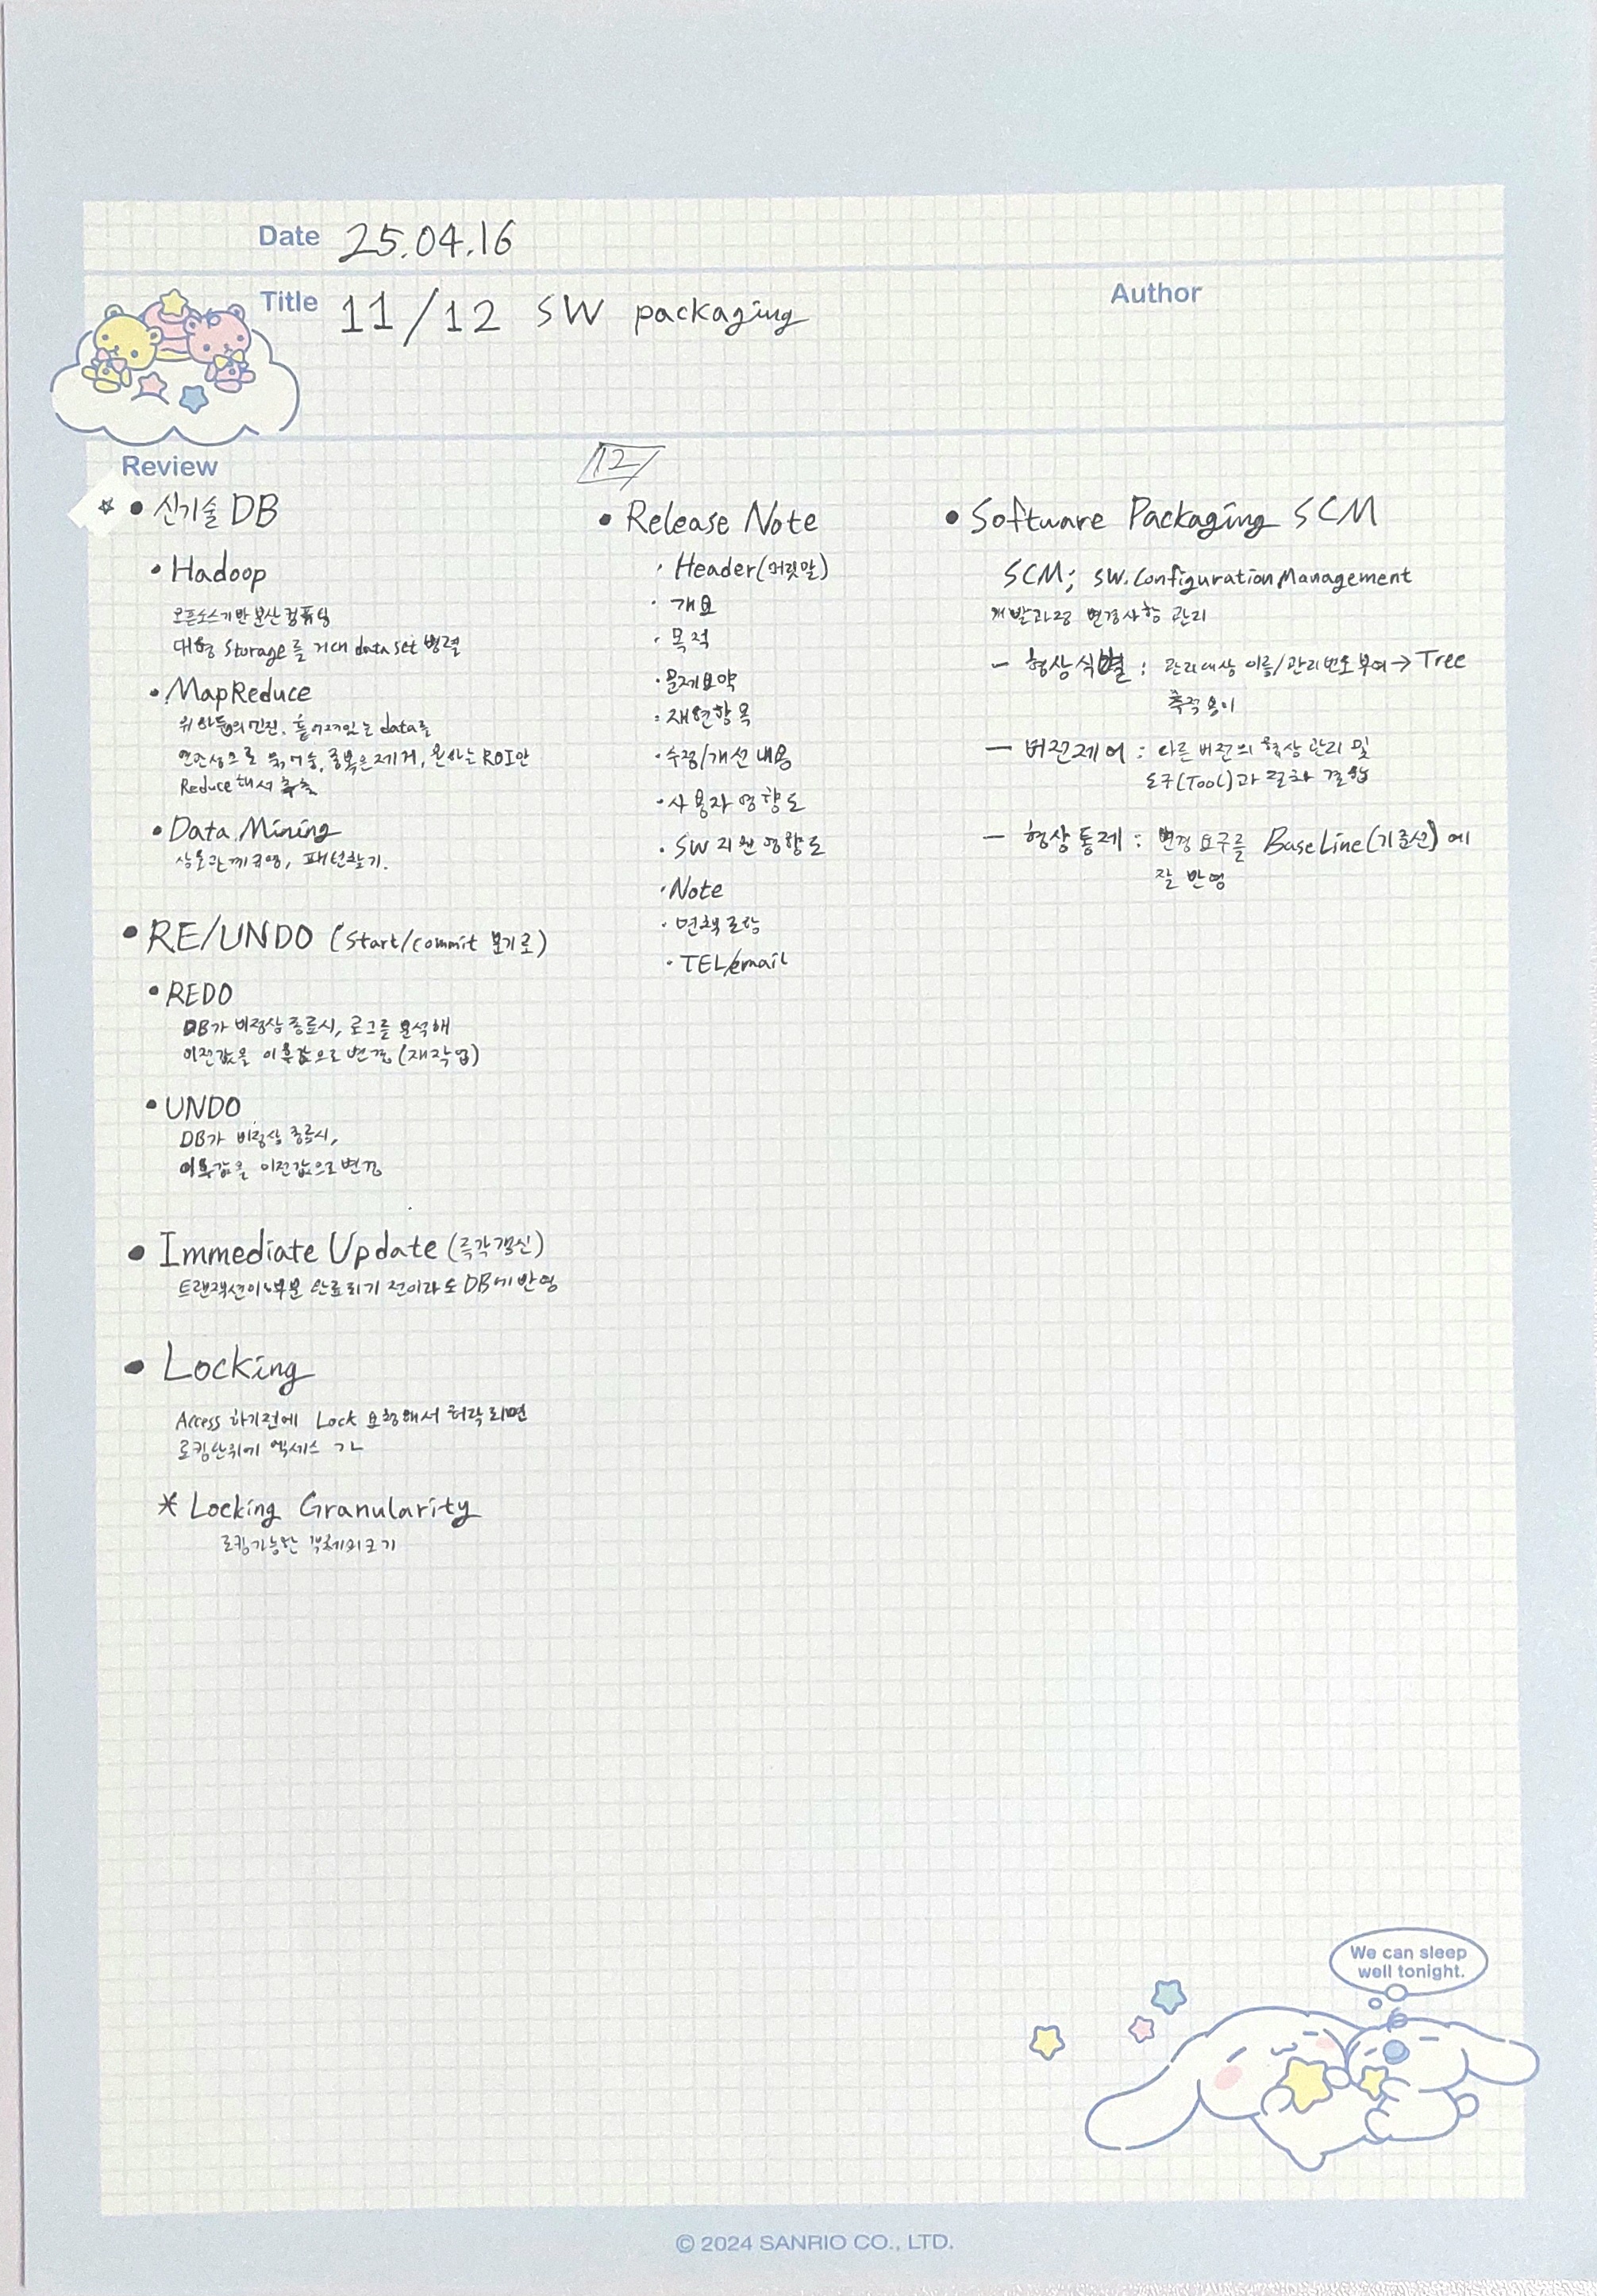 Date 25.04.16
Title 11/12 SW packaging
Author
Review
☆ • 신기술 DB
• Hadoop
오픈소스기반 분산 컴퓨팅
대형 Storage를 거대 data set 병렬
• MapReduce
흩어져있는 data를
연관성으로 묶 중복은제거, 원하는 ROI만
Reduce해서 추출
• Data Mining
상호관계규명, 패턴찾기.
• RE/UNDO (start/commit 분기로)
• REDO
DB가 비정상 종료시, 로그를 분석해
이전값을 이후값으로 변경 (재작업)
• UNDO
DB가 비정상 종료시,
이후값을 이전값으로 변경
• Immediate Update (즉각갱신)
트랜잭션이 부분 완료되기 전이라도 DB에 반영
• Locking
Access 하기전에 Lock 요청해서 허락되면
로킹단위에 액세스 가
* Locking Granularity
로킹가능한 객체의크기
12
• Release Note
· Header(머릿말)
· 개요
· 목적
· 문제요약
· 재현항목
· 수정/개선 내용
· 사용자 영향도
· SW 지원 영향도
· Note
· 면책조항
· TEL/email
• Software Packaging SCM
SCM; SW.Configuration Management
개발과정 변경사항 관리
- 형상식별 : 관리대상 이름/관리번호 부여 → Tree
축적 용이
- 버전제어 : 다른 버전의 형상 관리 및
도구(Tool)과 절차 결합
- 형상통제 : 변경 요구를 BaseLine(기준선)에
잘 반영
We can sleep
well tonight.
© 2024 SANRIO CO., LTD.